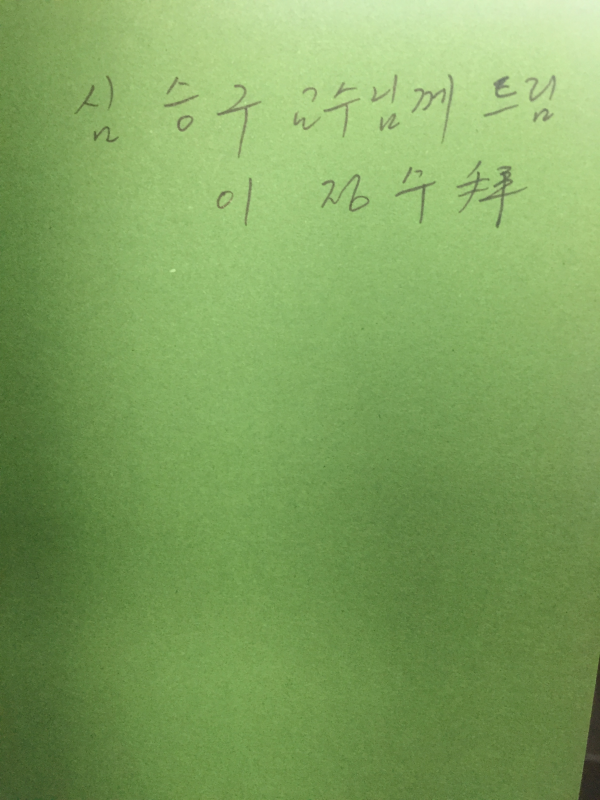 심 승구 교수님께 드림
이 정수 拜